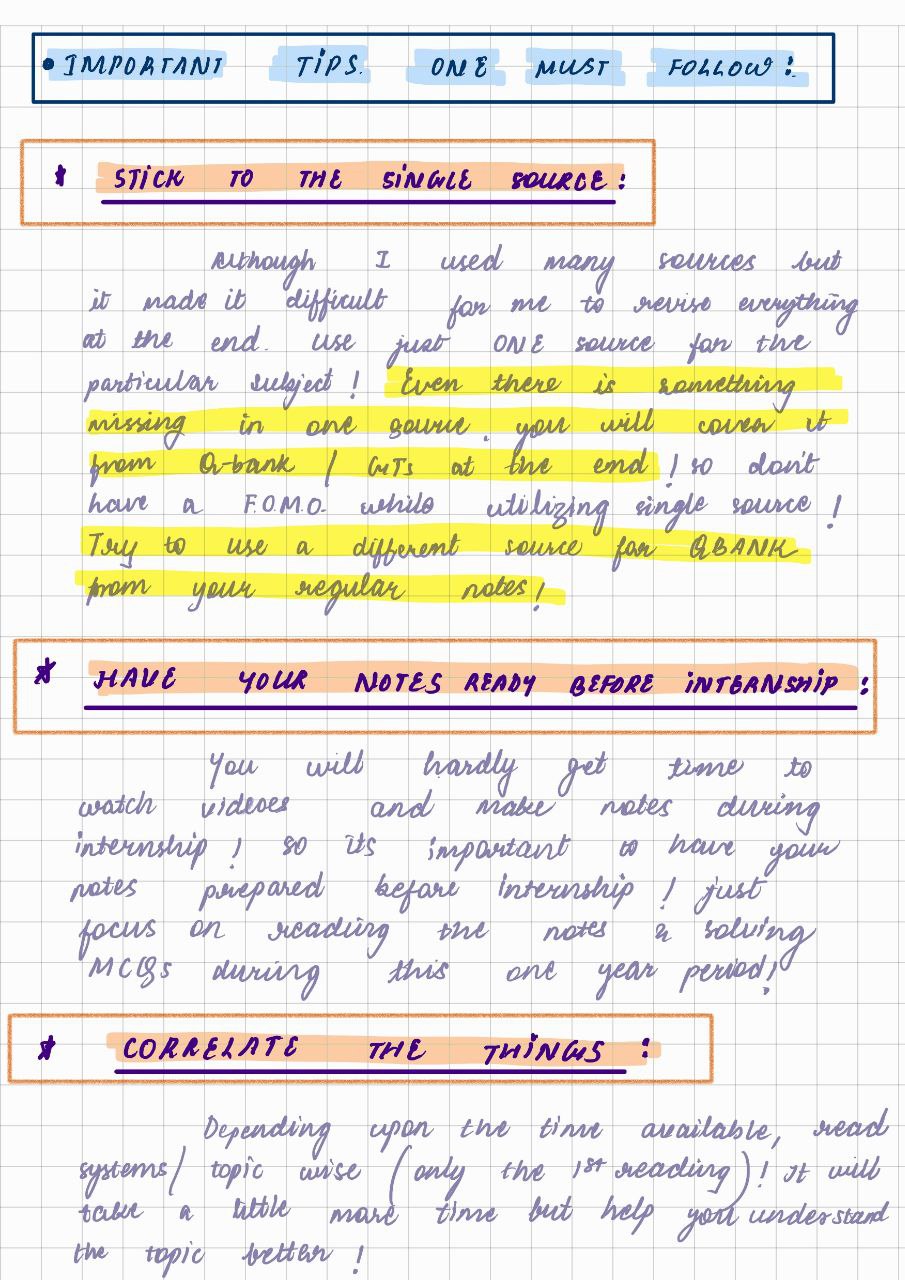 • IMPORTANT TIPS. ONE MUST FOLLOW :
* STICK TO THE SINGLE SOURCE :
Although I used many sources but
it made it difficult for me to revise everything
at the end. use just ONE source for the
particular subject ! Even there is something
missing in one source, you will cover it
from Q-bank / GTs at the end ! so don't
have a F.O.M.O. while utilizing single source !
Try to use a different source for QBANK
from your regular notes !
* HAVE YOUR NOTES READY BEFORE INTERNSHIP :
You will hardly get time to
watch videoes and make notes during
internship ! so its important to have your
notes prepared before internship ! just
focus on reading the notes & solving
MCQs during this one year period !
* CORRELATE THE THINGS :
Depending upon the time available, read
systems / topic wise (only the 1st reading) ! it will
take a little more time but help you understand
the topic better !